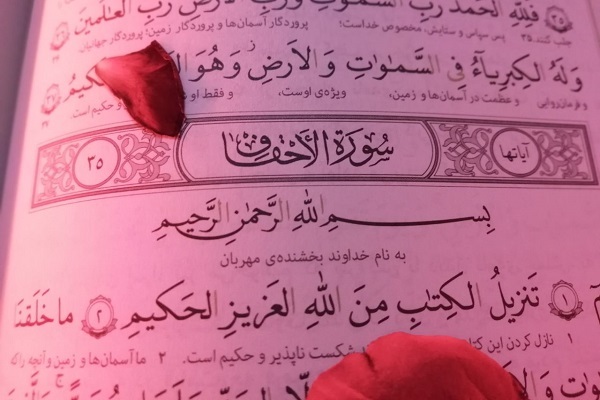 فَلِلّٰهِ الحَمدُ رَبِّ السَّمٰوٰتِ وَرَبِّ الاَرضِ رَبِّ العٰالَمينَ
جلب کنند. ۳۵ پس سپاس و ستایش، مخصوص خداست؛ پروردگار آسمان‌ها و پروردگار زمین؛ پروردگار جهانیان
وَلَهُ الكِبرِيآءُ فِى السَّمٰوٰتِ وَ الاَرضِ وَهُوَ الحَكيمُ
و فرمان‌روایی و عظمت در آسمان‌ها و زمین، ویژه‌ی اوست، و فقط او و حکیم است.
آیاتها سُورَةُ الأَحْقَافِ ۳۵
بِسمِ اللهِ الرَّحمٰنِ الرَّحيمِ
به نام خداوند بخشنده‌ی مهربان
۱ تَنزيلُ الكِتٰبِ مِنَ اللهِ العَزيزِ الحَكيمِ ۲ ما خَلَقنَا
۱ نازل کردن این شکست ناپذیر و حکیم است. ۲ ما آسمان‌ها و زمین و آنچه را که